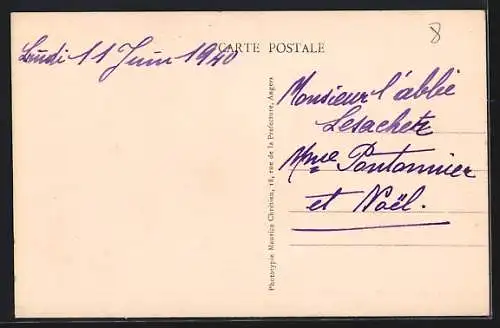 Lundi 11 Juin 1940
CARTE POSTALE
8
Monsieur l'abbé
Lesachetz
Mme Pontonnier
et Noël.
Phototypie Maurice Chrétien, 18, rue de la Préfecture, Angers